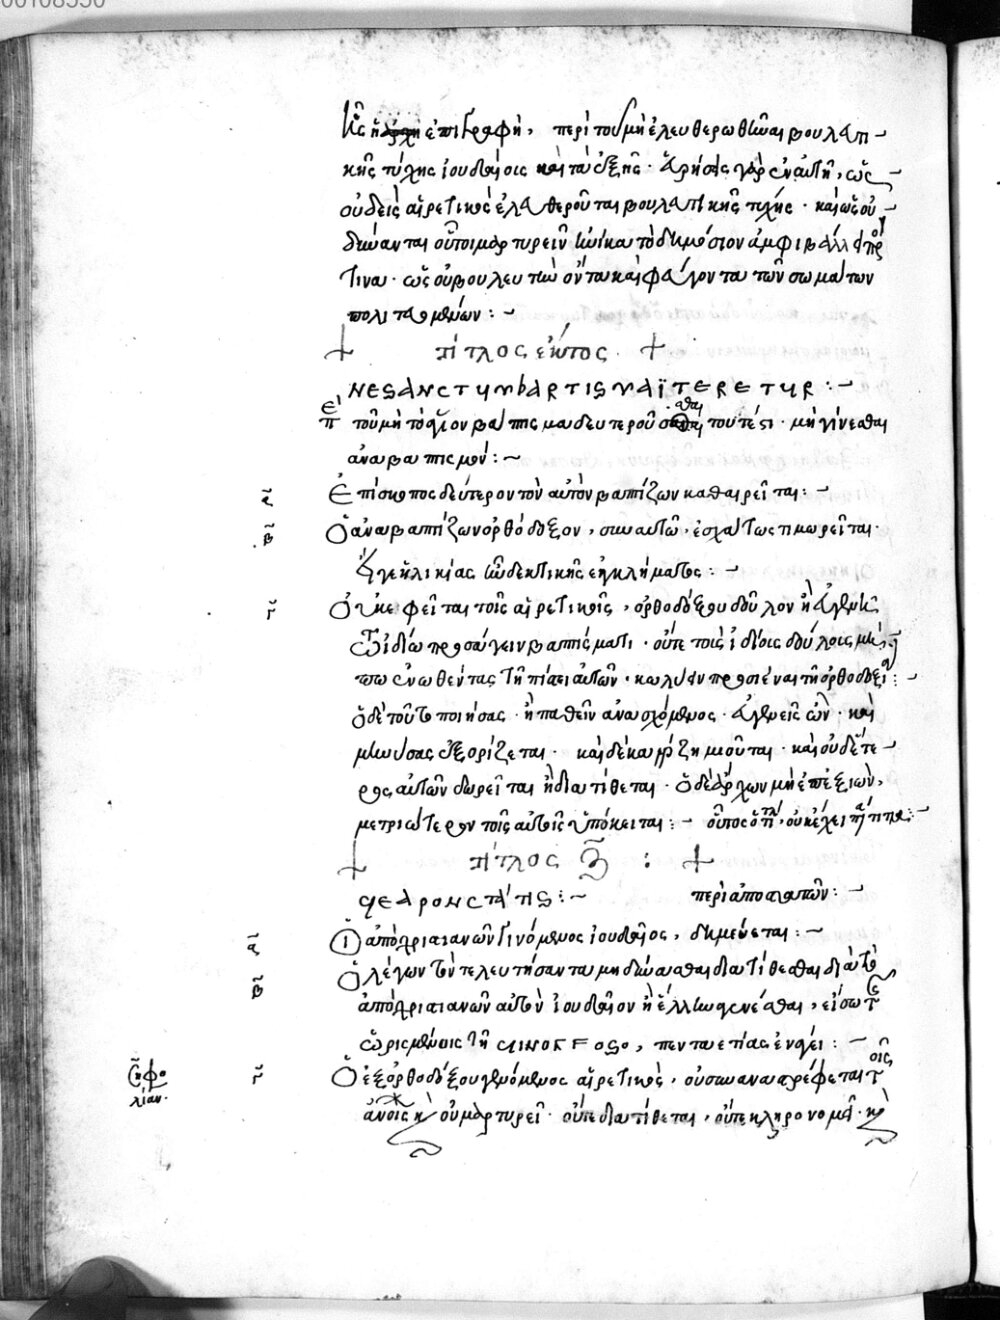 00108550
καὶ ἡ ἐπιγραφὴ, περὶ τοῦ μὴ ἐλευθεροῦσθαι βουλευτι-
κῆς τύχης ἰουδαίοις καὶ τὰ ἑξῆς. εἴρηται γὰρ ἐν αὐτῇ, ὡς
οὐδεὶς αἱρετικὸς ἐλευθεροῦται βουλευτικῆς τύχης. καὶ ὡς οὐ
δύνανται οὗτοι μαρτυρεῖν
τινα. ὡς οὐ βουλευτῶν ὄντα καὶ τῶν σωμάτων
πολιτευομένων:~
τίτλος ἕκτος
NE SANCTUM BAPTISMA ITERETUR:~
ἐπὶ τοῦ μὴ τὸ ἅγιον βάπτισμα δευτεροῦσθαι τουτέστι. μὴ γίνεσθαι
ἀναβαπτισμόν:~
α Ἐπίσκοπος δεύτερον τὸν αὐτὸν βαπτίζων καθαιρεῖται:~
β Ὁ ἀναβαπτίζων ὀρθόδοξον, σὺν αὐτῶ, ἐσχάτως τιμωρεῖται.
ἡλικίας δεκτικῆς ἐγκλήματος:~
γ Οὐκ ἐφεῖται τοῖς αἱρετικοῖς, ὀρθοδόξου δοῦλον ἢ
τῶ ἰδίω προσάγειν βαπτίσματι. οὔτε τοὺς ἰδίους δούλους μὴ
πω ἑνωθέντας τῇ πίστει αὐτῶν. κωλύειν προσιέναι τῇ ὀρθοδόξω:~
ὁ δὲ τοῦτο ποιήσας. ἢ παθεῖν ἀνασχόμενος. ὢν. καὶ
μηνύσας ἐξορίζεται. καὶ δέκα ζημιοῦται. καὶ οὐδέτε-
ρος αὐτῶν δωρεῖται ἢ διατίθεται. ὁ δὲ ἄρχων μὴ ἐπεξιὼν,
μετριώτερον τοῖς αὐτοῖς ὑπόκειται:~ οὗτος ὁ τίτλος οὐκ ἔχει
τίτλος ζ : +
DE APOSTATIS:~ περὶ ἀποστατῶν:~
α Ὁ ἀπὸ χριστιανῶν γινόμενος ἰουδαῖος, δημεύεται:~
β Ὁ λέγων τὸν τελευτήσαντα μὴ δύνασθαι διατίθεσθαι διὰ τὸ
ἀπὸ χριστιανῶν αὐτὸν ἰουδαῖον ἢ ἕλληνα γενέσθαι, εἴσω τῆς
ὡρισμένης τῇ πενταετίας ἐνάγει:~
γ Ὁ ἐξ ὀρθοδόξου γενόμενος αἱρετικὸς, οὐ συναναστρέφεται τοῖς
ἀνοις οὐ μαρτυρεῖ. οὔτε διατίθεται, οὔτε κληρονομεῖ.